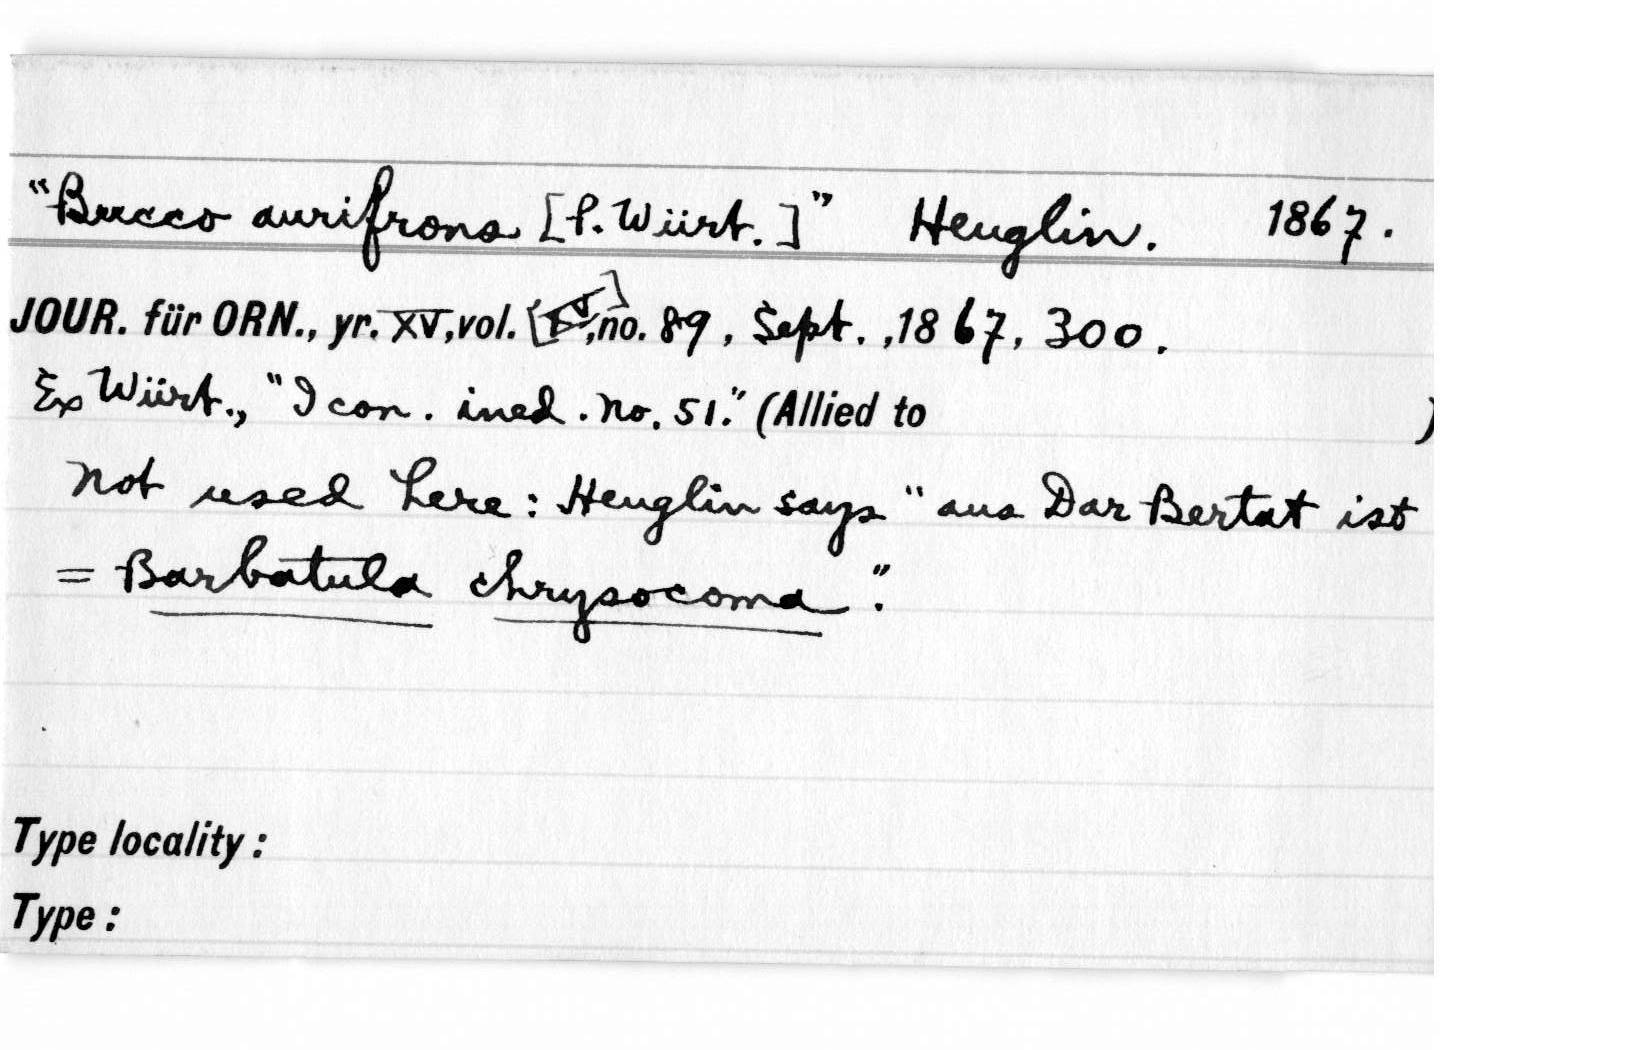 "Bucco aurifrons [P. Würt.]" Heuglin. 1867.
JOUR. für ORN., yr. XV, vol. [XV], no. 89, Sept., 1867, 300.
Ex Würt., "Icon. ined. No. 51." (Allied to )
Not used here: Heuglin says "aus Dar Bertat ist
= Barbatula chrysocoma".
Type locality :
Type :